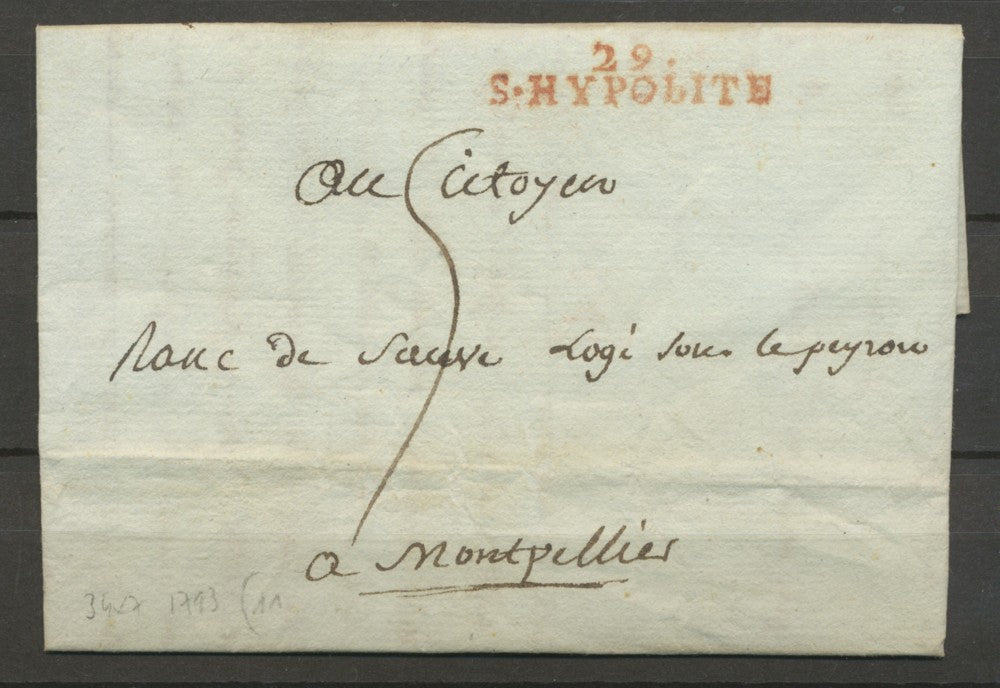 29.
S·HYPOLITE
Au Citoyen
5
Ranc de Sauve Logé sous le peyrou
a Montpellier
1793 (11